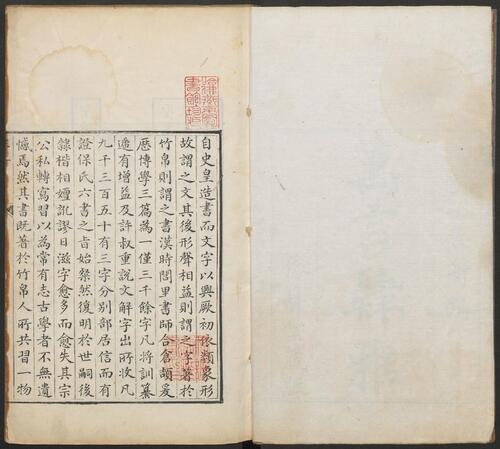 自史皇造書而文字以興厥初依類象形
故謂之文其後形聲相益則謂之字著於
竹帛則謂之書漢時閭里書師合倉頡爰
歷博學三篇為一僅三千餘字凡將訓纂
遞有增益及許叔重說文解字出所收凡
九千三百五十有三字分別部居信而有
證保氏六書之旨始粲然復明於世嗣後
隸楷相嬗訛謬日滋字愈多而愈失其宗
公私轉寫習以為常有志古學者不無遺
憾焉然其書既著於竹帛人所共習一物